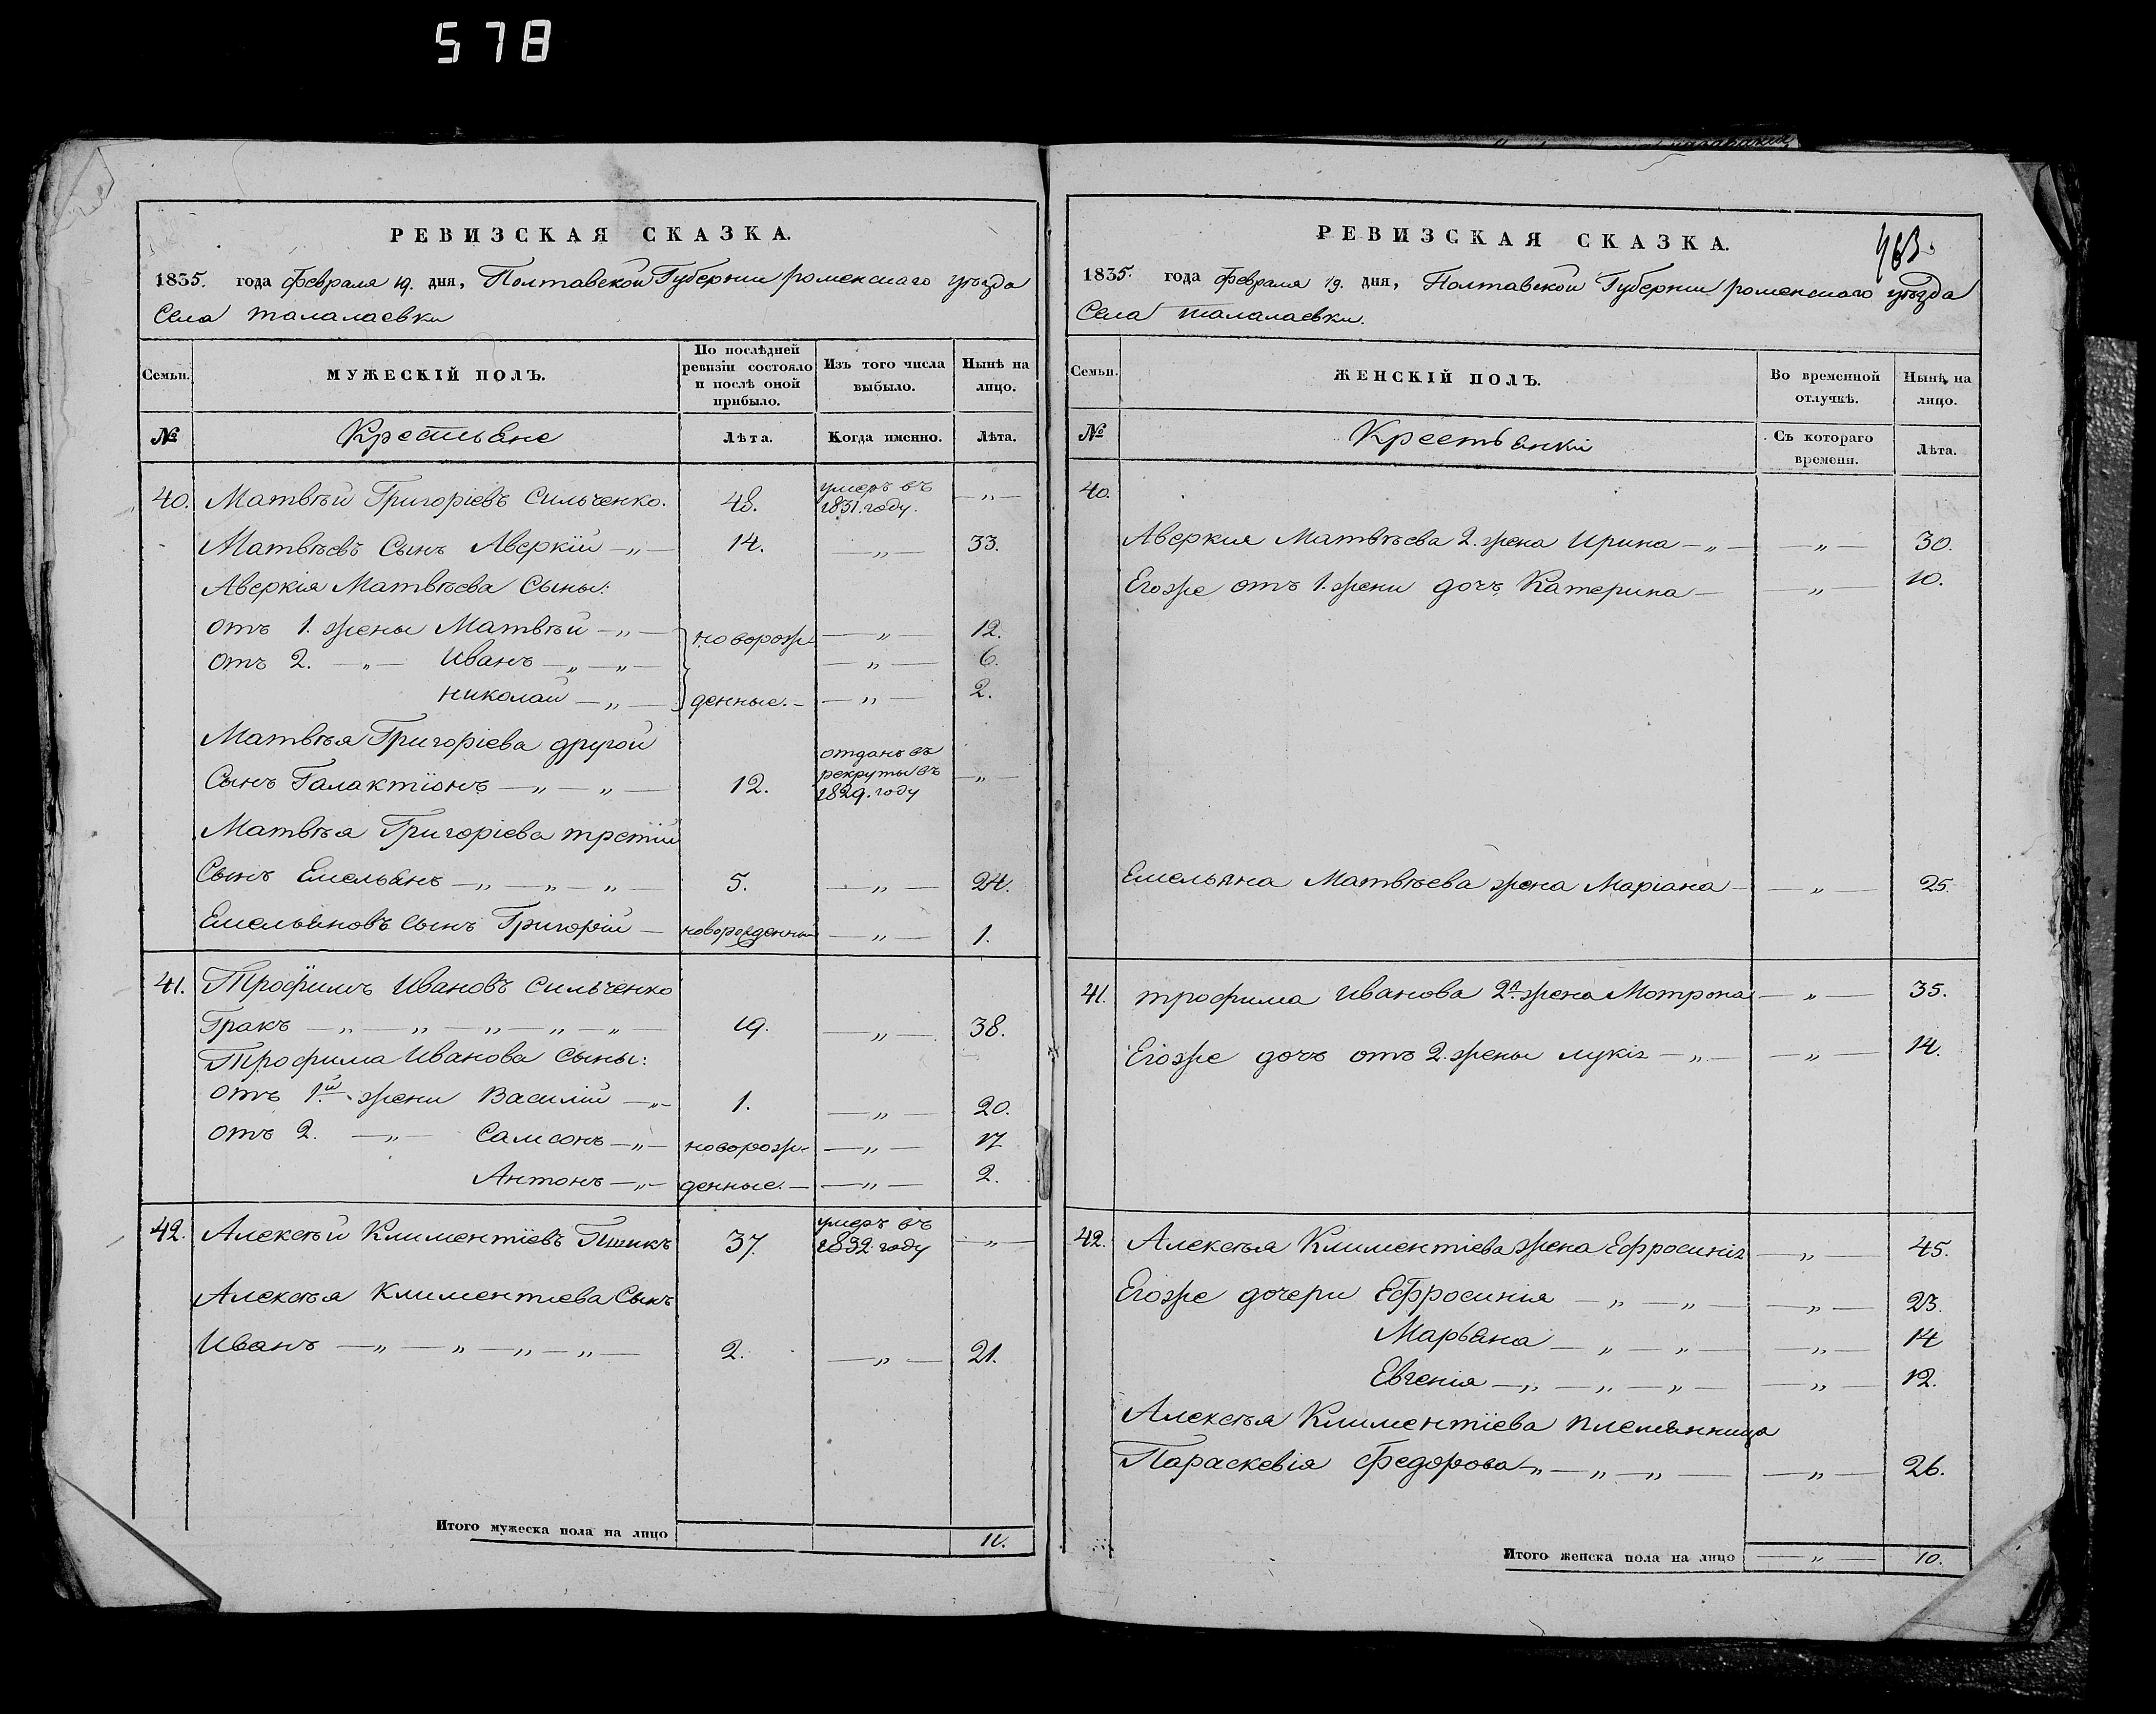 578
РЕВИЗСКАЯ СКАЗКА.
1835. года февраля 19. дня, Полтавской Губернии роменскаго уѣзда
Села талалаевки
Семьи.
МУЖЕСКІЙ ПОЛЪ.
По послѣдней ревизіи состояло и послѣ оной прибыло.
Изъ того числа выбыло.
Нынѣ на лицо.
№ Крестьяне Лѣта. Когда именно. Лѣта.
40. Матвѣй Григоріевъ Сильченко. 48. умеръ въ 1831. году. — „ —
Матвѣевъ Сынъ Аверкій — „ — 14. — „ — 33.
Аверкія Матвѣева Сыны:
отъ 1. жены Матвѣй — „ — новорож- — „ — 12.
отъ 2. — „ — Иванъ — „ — „ — — „ — 6.
николай — „ — денные. — — „ — 2.
Матвѣя Григоріева другой
Сынъ Галактіонъ — „ — „ — 12. отданъ въ рекруты въ 1829. году — „ —
Матвѣя Григоріева третій
Сынъ Емельянъ — „ — „ — „ — 5. — „ — 24.
Емельяновъ сынъ Григорій — новорожденный — „ — 1.
41. Трофимъ Ивановъ Сильченко
Гракъ — „ — „ — „ — „ — „ — 19. — „ — 38.
Трофима Иванова Сыны:
отъ 1й. жени Василій — „ — 1. — „ — 20.
отъ 2. — „ — Самсонъ — „ — новорож- — „ — 17
Антонъ — „ — денные. — — „ — 2.
42. Алексѣй Климентіевъ 37. умеръ въ 1832. году — „ —
Алексѣя Климентіева Сынъ
Иванъ — „ — „ — „ — „ — 2. — „ — 21.
Итого мужеска пола на лицо 11.
РЕВИЗСКАЯ СКАЗКА.
463.
1835. года февраля 19. дня, Полтавской Губернии роменскаго уѣзда
Села талалаевки.
Семьи.
ЖЕНСКІЙ ПОЛЪ.
Во временной отлучкѣ.
Нынѣ на лицо.
№ Крестьянки Съ котораго времени. Лѣта.
40.
Аверкия Матвѣева 2. жена Ирина — „ — — „ — 30.
Егоже отъ 1. жени дочъ Катерина — — „ — 10.
Емельяна Матвѣева жена Маріана — — „ — 25.
41. трофима Иванова 2я. жена Мотрона — „ — 35.
Егоже дочъ отъ 2. жены лукія — „ — — „ — 14.
42. Алексѣя Климентіева жена Ефросинія — „ — 45.
Егоже дочери Ефросинія — „ — „ — — „ — 23.
Марьяна — „ — „ — — „ — 14
Евгенія — „ — „ — „ — — „ — 12.
Алексѣя Климентіева племянница
Параскевія Федорова „ — „ — „ — — „ — 26.
Итого женска пола на лицо — „ — 10.